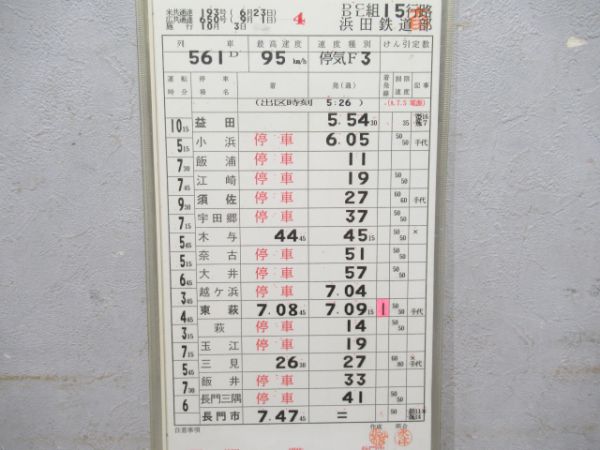 米共通達 193号(6月23日)
広共通達 650号(9月1日)
施行 10月3日
4
DC DL組 15行路
浜田鉄道部
列車 最高速度 速度種別 けん引定数
561D 95 km/h 停気F3
運転時分 停車場名 着 発(過) 着発線 制限速度 記事
(出区時刻 5:26)
益田 5.54 30 35
10 15
小浜 停車 6.05 50 50 千代
5 15
飯浦 停車 11
7 30
江崎 停車 19 50 50
7 45
須佐 停車 27 60 60 千代
9 30
宇田郷 停車 37
7 15
木与 44 45 45 15 50 50 ×
5 45
奈古 停車 51
5 45
大井 停車 57 50 50
6 45
越ケ浜 停車 7.04
3 45
東萩 7.08 45 7.09 15 1 50 50 千代
4 45
萩 停車 14 50 50
3 15
玉江 停車 19
7 15
三見 26 30 27 千代
5 45
飯井 停車 33
7 30
長門三隅 停車 41 50 50
6
長門市 7.47 45 = 50
注意事項 作成 照合